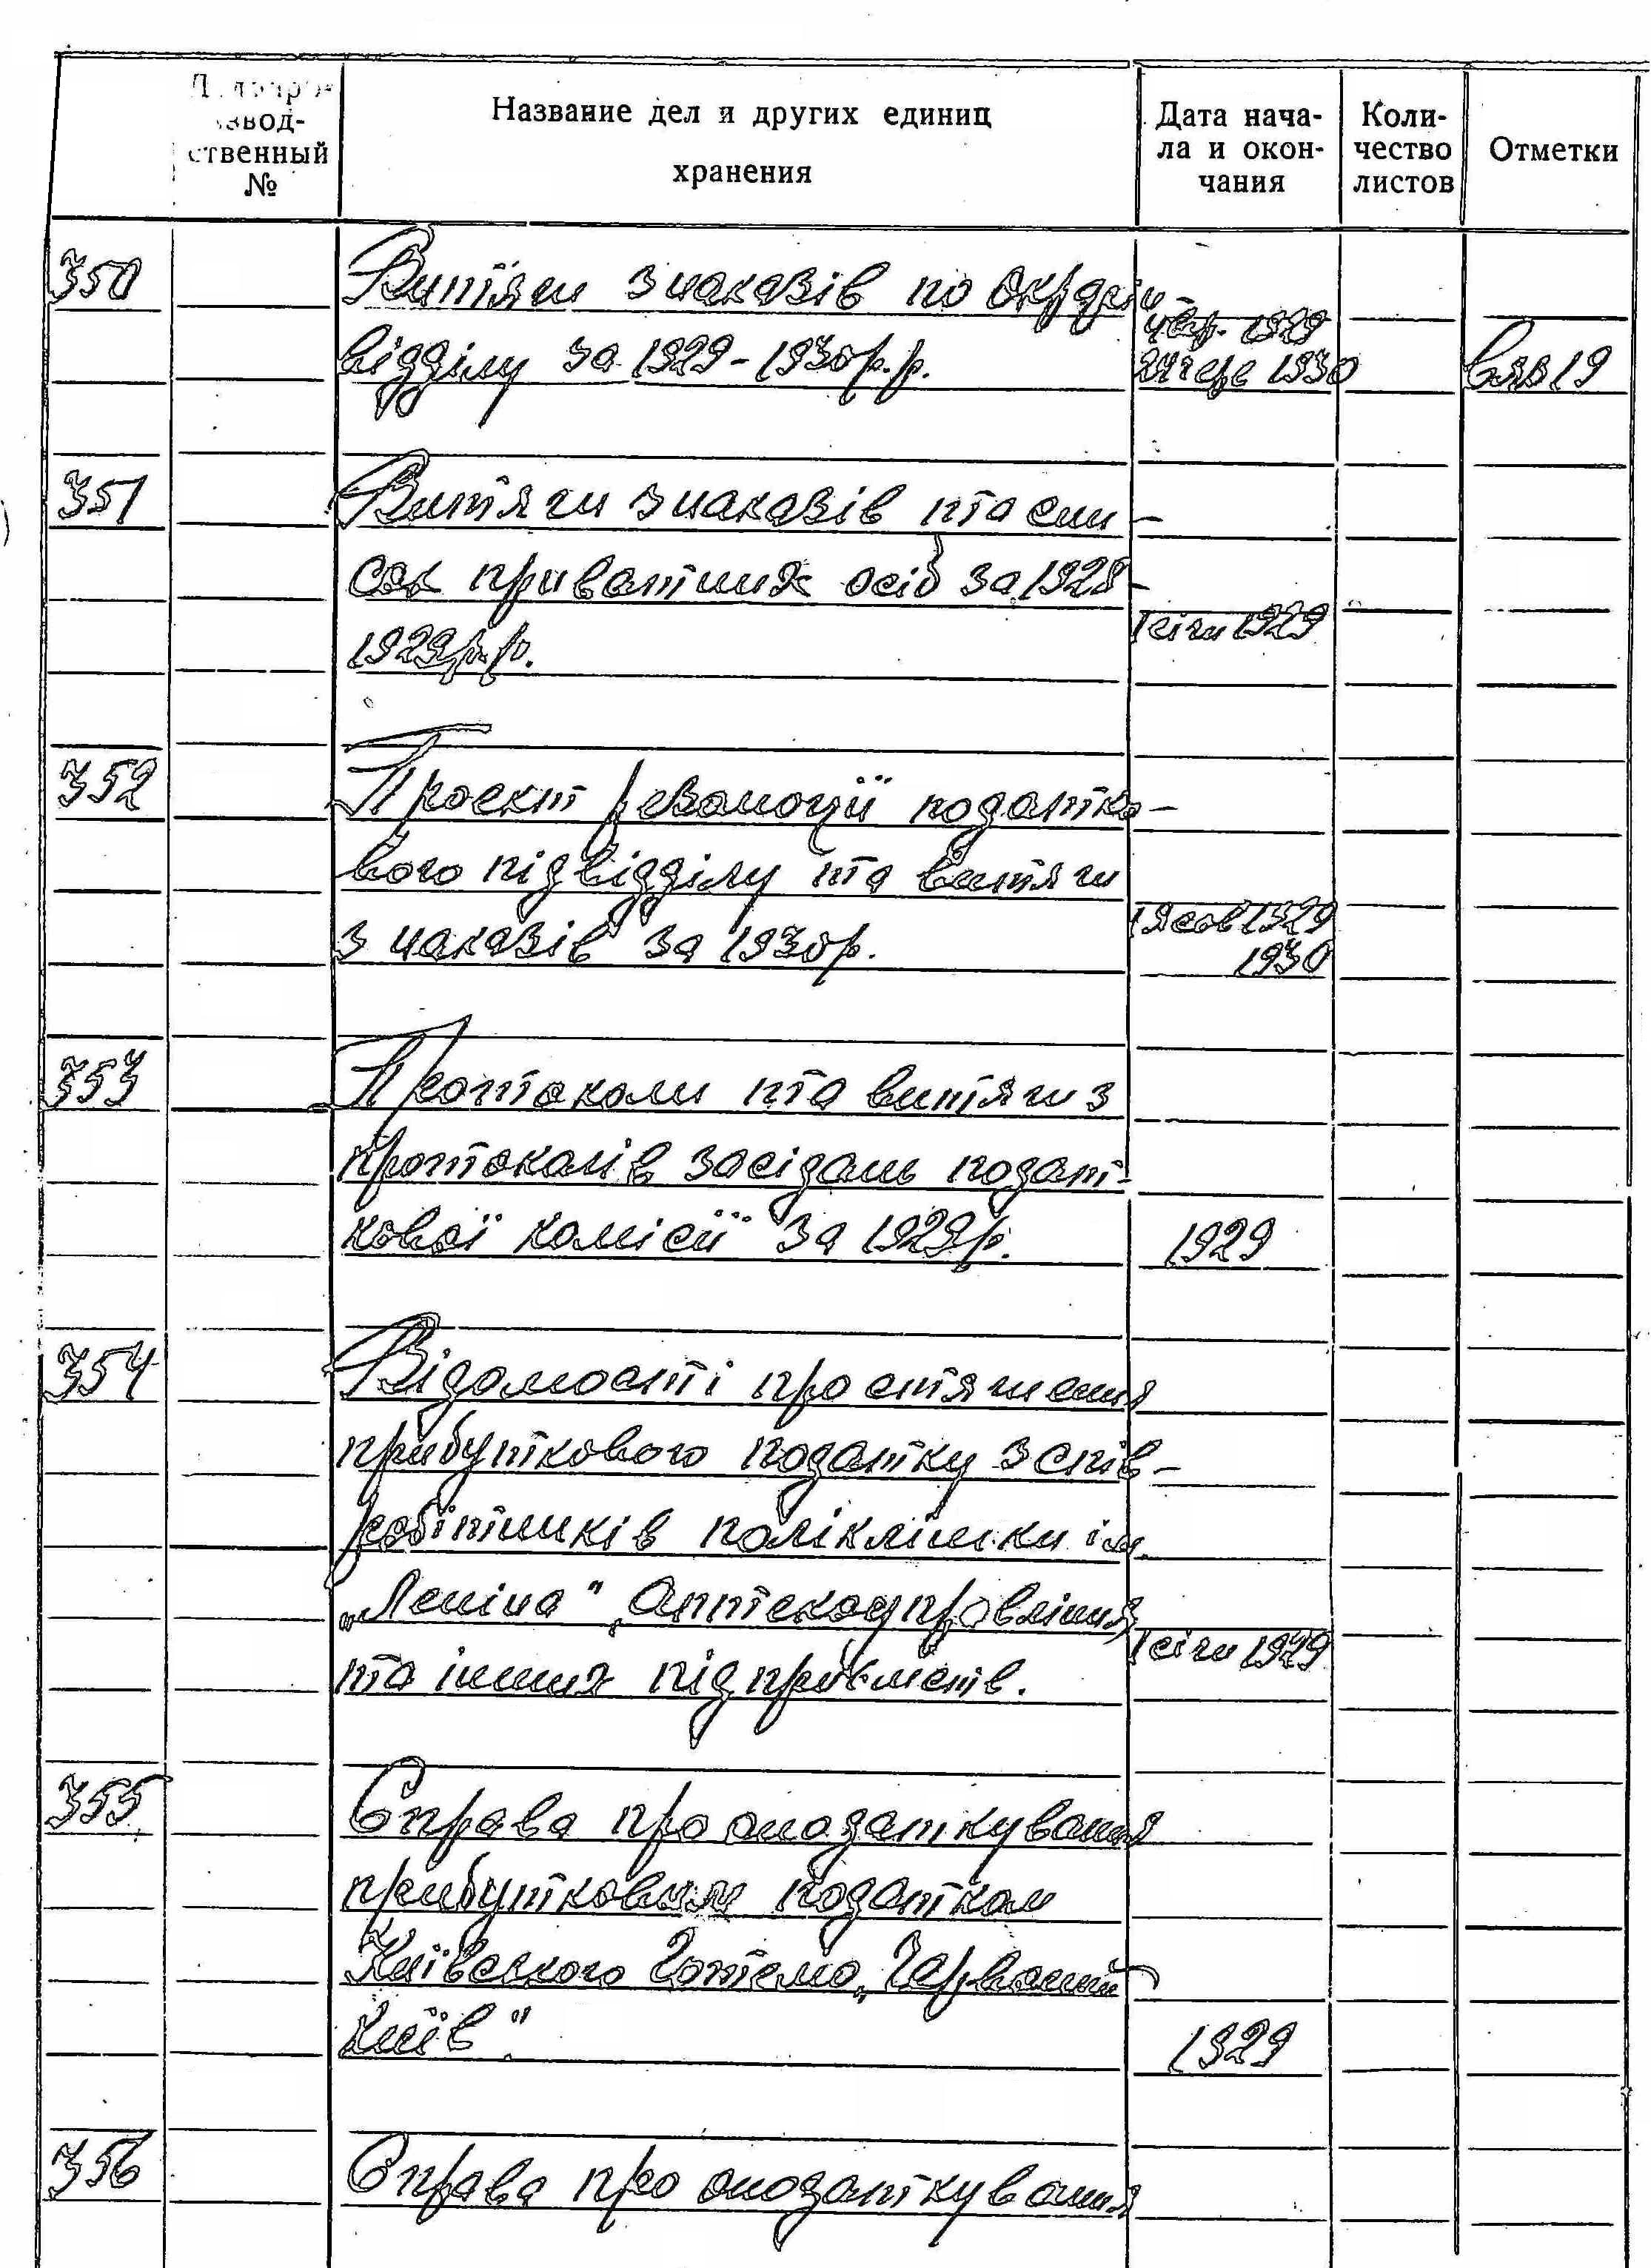 Делопро-
извод-
ственный
№
Название дел и других единиц
хранения
Дата нача-
ла и окон-
чания
Коли-
чество
листов
Отметки
350 Витяги з наказів по Окрфін-
відділу за 1929-1930 р.р.
1929
1930
351 Витяги з наказів та спи-
сок приватних осіб за 1928-
1929 р.р.
1 січн 1929
352 Проект резолюції податко-
вого підвідділу та витяги
з наказів за 1930 р.
1929
1930
353 Протоколи та витяги з
протоколів засідань подат-
кової комісії за 1929 р. 1929
354 Відомості про стягнення
прибуткового податку з спів-
робітників поліклініки ім.
„Леніна", Аптекоуправління,
та інших підприємств.
1 січн 1929
355 Справа про оподаткування
прибутковим податком
Київського Готелю „Червоний
Київ". 1929
356 Справа про оподаткування